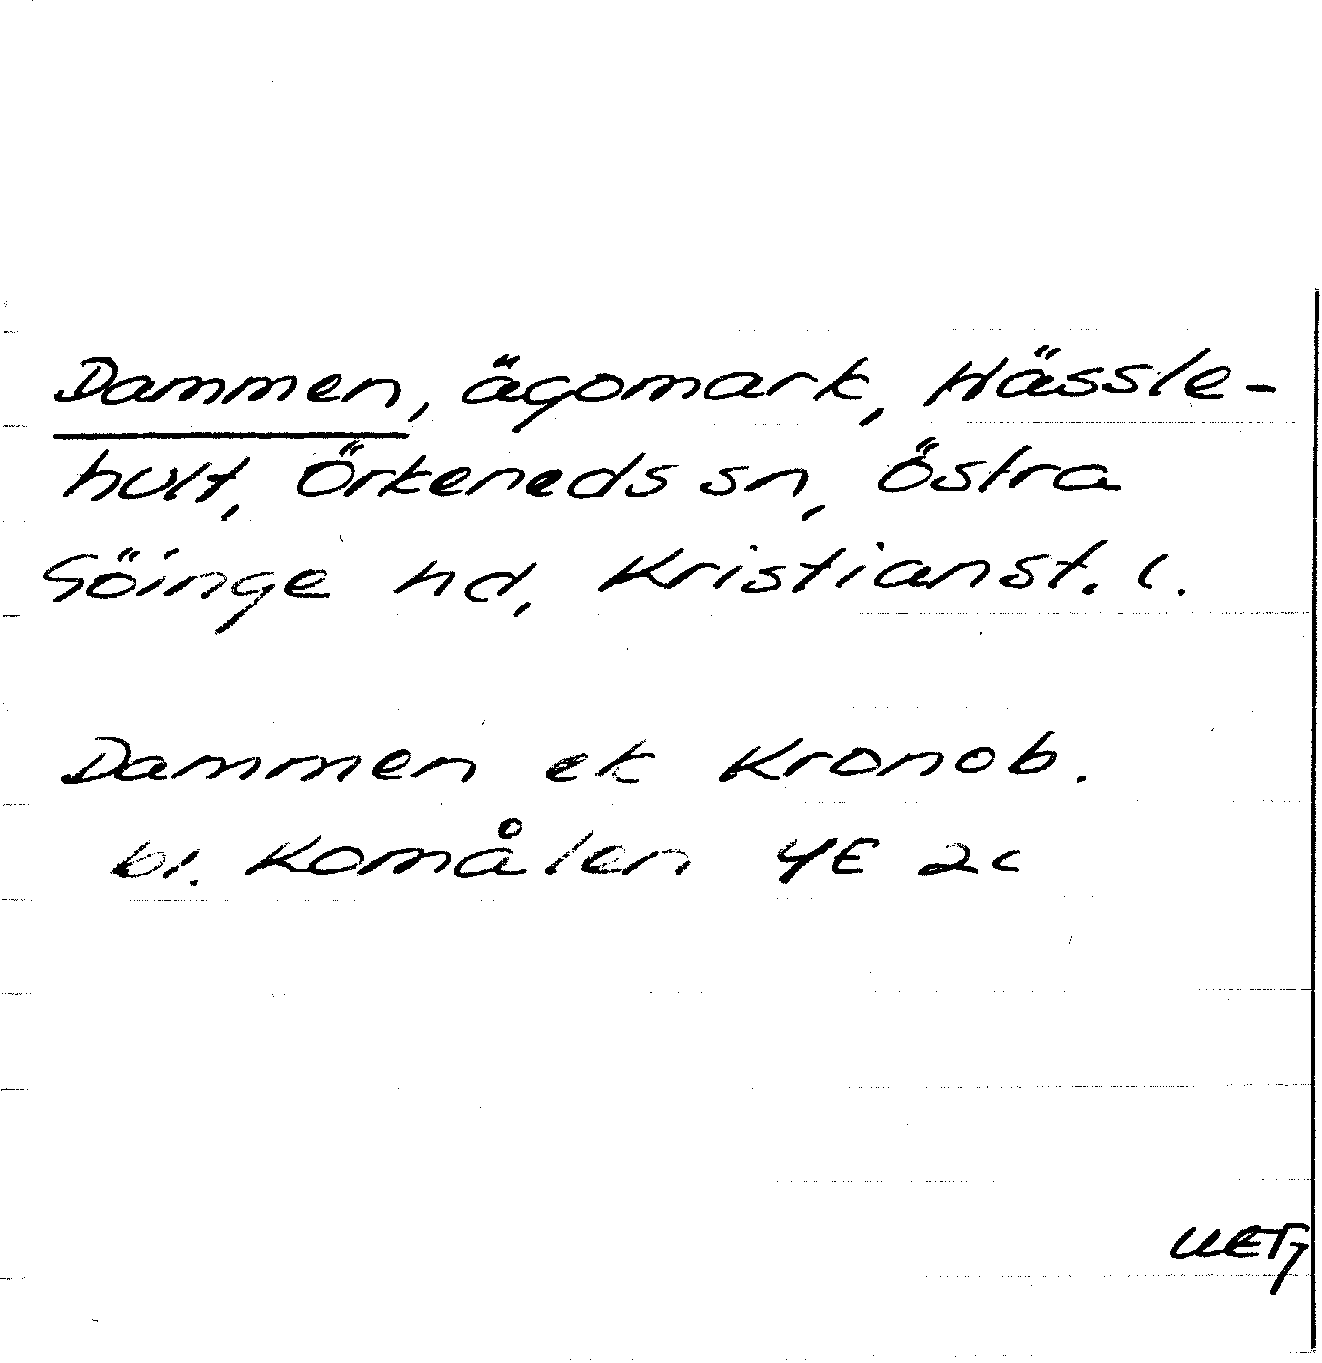 Dammen, ägomark, Hässle-
hult, Örkeneds sn, Östra
Göinge hd, Kristianst. l.
Dammen ek Kronob.
bl. Komålen 4E 2c